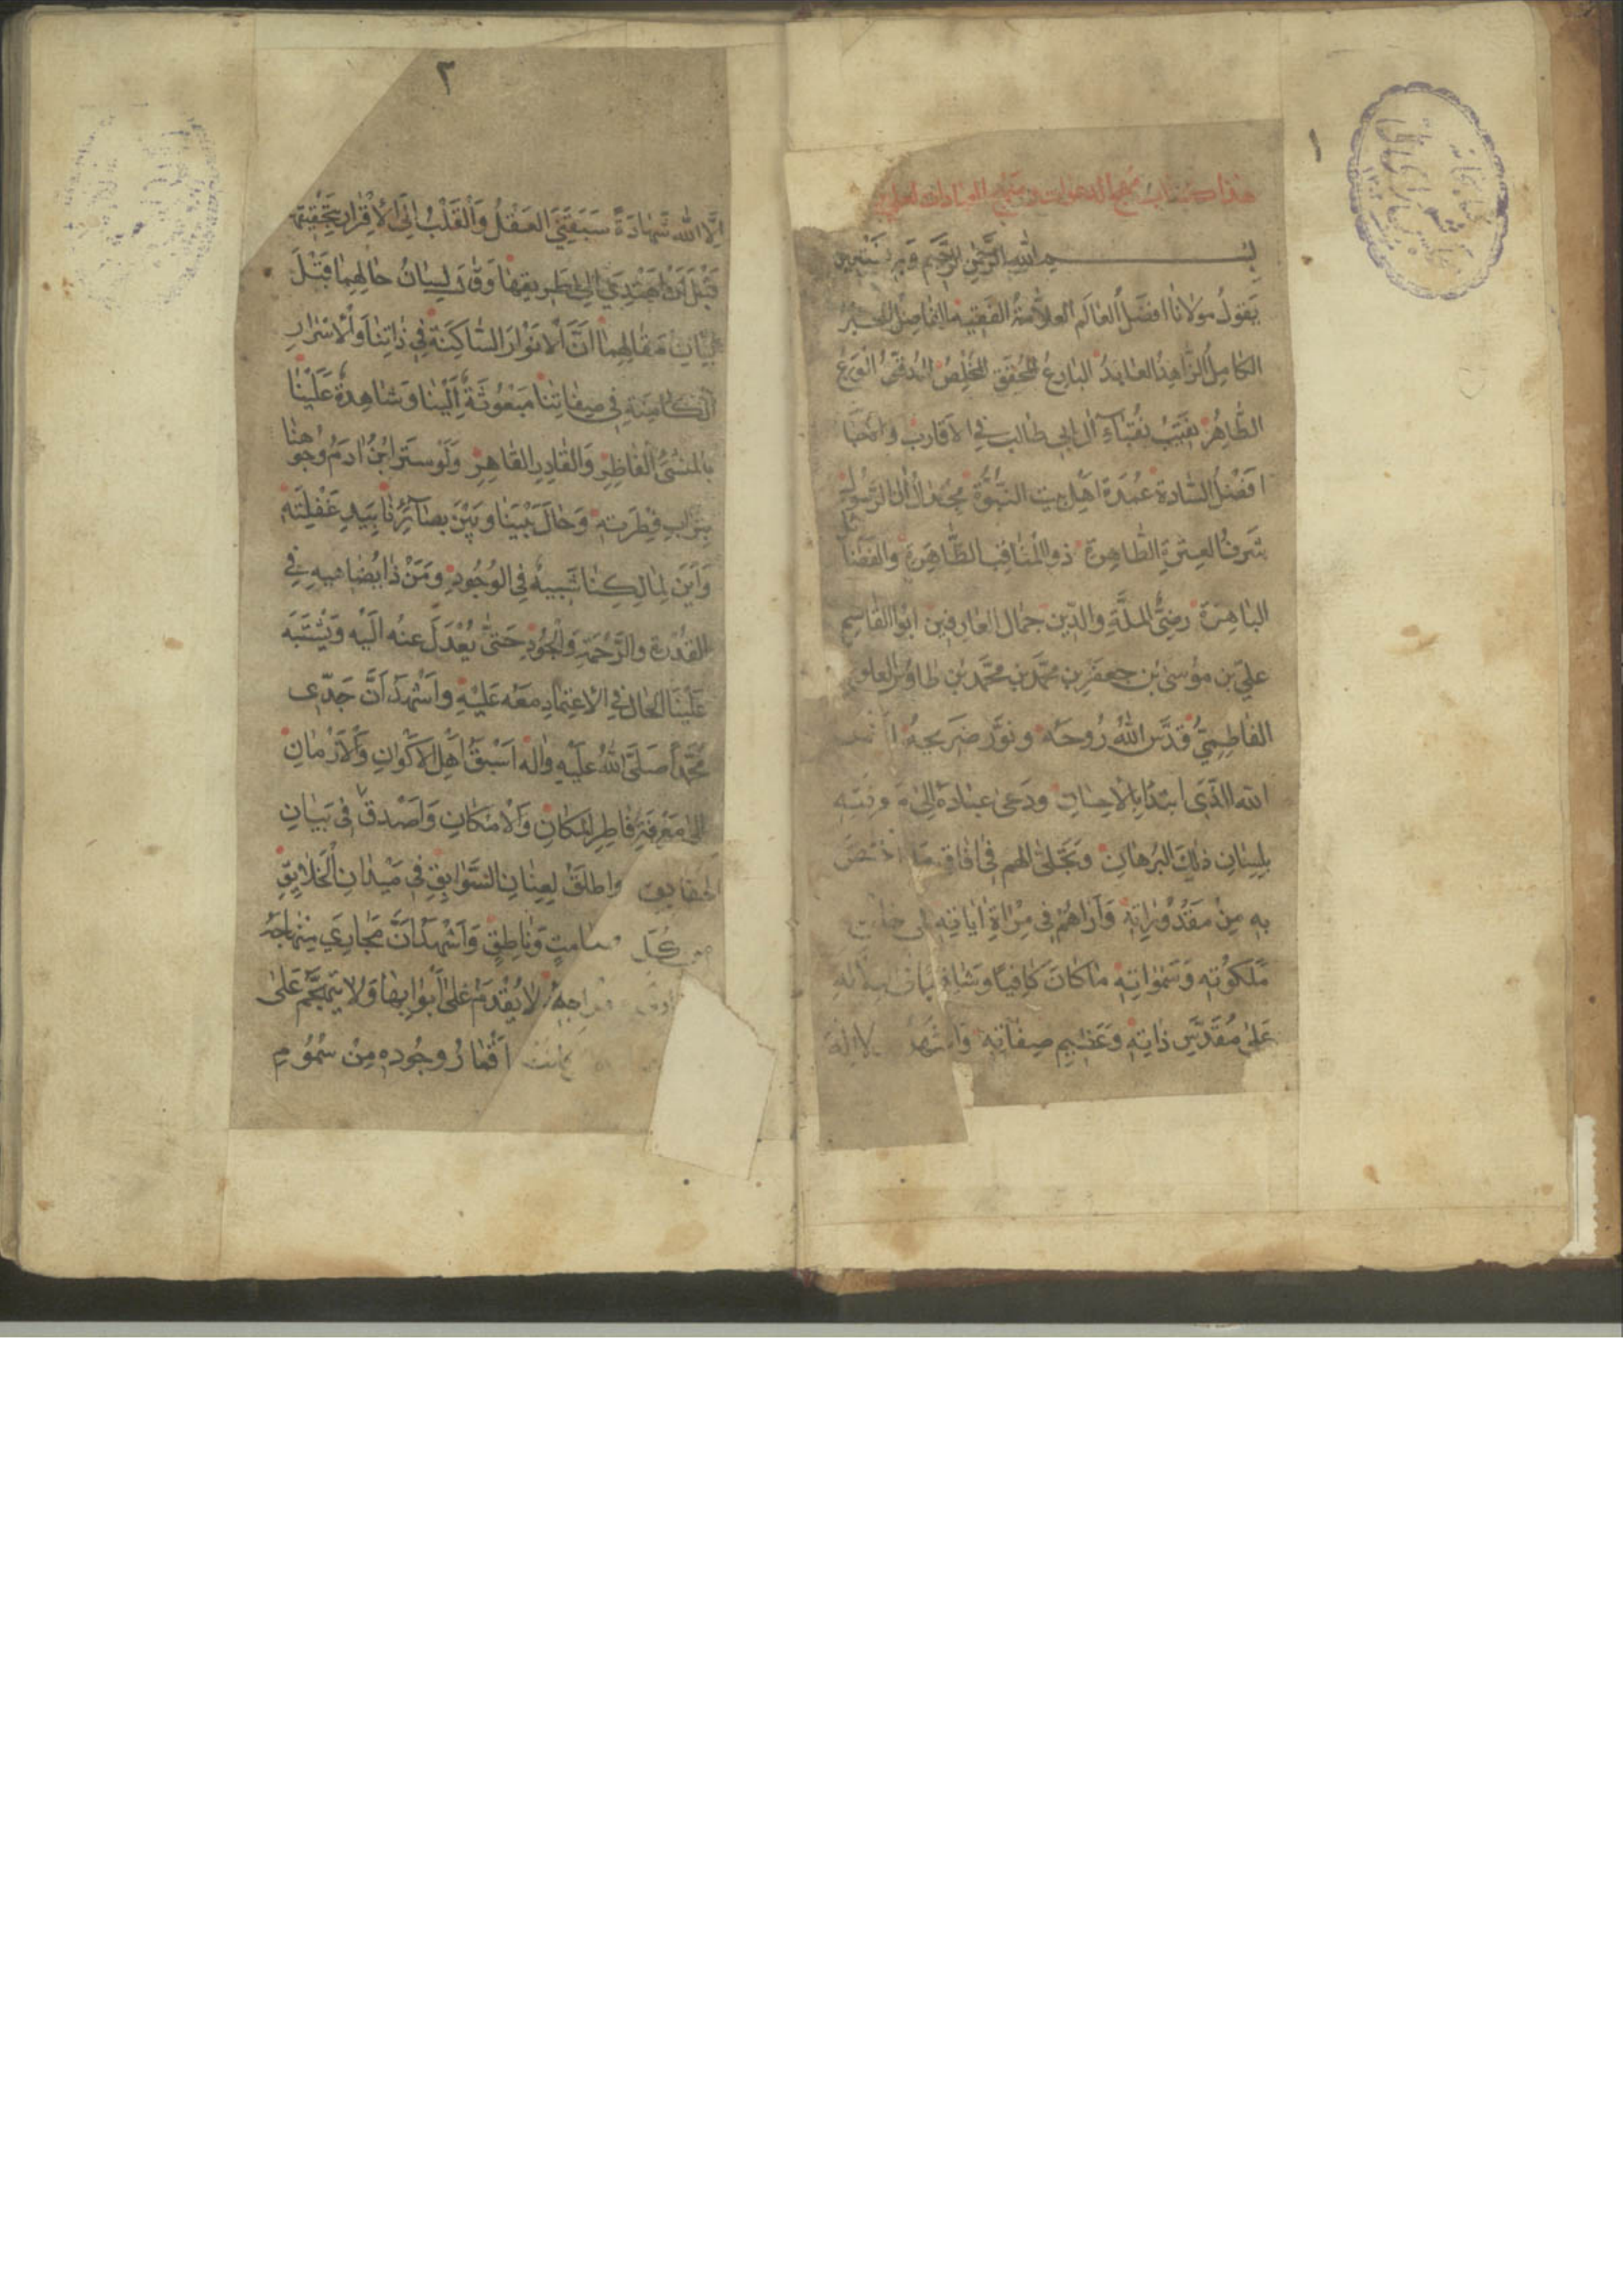 ١
هذا كتاب مهج الدعوات و منهج العبادات
بسم الله الرحمن الرحيم وبه نستعين
يَقولُ مولانا افضَلُ العٰالَم العلّامةُ الفَقيه الفاضِل الحبرُ
الكامِلُ الزّاهِدُ العٰابِدُ البٰارِعُ المحُقّق المخُلِصُ المُدقّقُ الوَرعُ
الطّاهِرُ نقيبُ نُقبٰاءِ آل ابي طالب في الاقارب والاجٰانب
افضلُ السّادة عُمدَة اهل بيت النّبُوّة مجد آل الرّسُول
شرفُ العِترةِ الطّاهِرةِ ذو المنٰاقِب الظّاهِرَةِ والفضٰائل
البٰاهِرَة رضِىّ المِلّةِ والدّين جمٰال العٰارفين ابوالقٰاسِم
علي بن موسىٰ بن جعفر بن محمّد بن محمّد بن طاوُس العلوي
الفٰاطِميّ قدّس اللّٰهُ رُوحَه ونوّر ضَريحهُ
الله الّذي ابتدَأ بالاحِسٰانِ ودَعىٰ عبٰادهُ إلىٰ معرفته
بلِسٰانِ ذٰلِكَ البُرهٰانِ وتَجَلّىٰ لهم في اٰفاقِ ما اختصّ
بهِ مِنْ مَقدُورٰاتِهِ وَاَراهُمْ في مِرْاٰةِ
مَلَكوُتِهِ وَسَمٰوٰاتِهِ مٰا كانَ كٰافِيًا وشٰافِيًا في
عَلىٰ مُقَدّسِ ذٰاتِهِ وعَظيمِ صِفٰاتِهِ وَاَشْهدُ لاٰ اِلٰهَ
٢
اِلّا اللّٰه شهٰادَةً سَبَقَني العَقلُ وَالقَلْبُ اِلَى الْاِقْرارِ بتحْقيقِهٰا
قَبْلَ اَنْ اهْتدِي اِلىٰ طريقِهٰا وَقٰالَ لِسٰانُ حٰالِهِمٰا قَبْلَ
بيٰانِ مَقٰالِهِمٰا اَنّ الانوٰارَ السّاكِنَةَ في ذٰاتِنٰا وَالاسْرٰارِ
الكٰامِنَةِ في صِفٰاتِنٰا مَبْعُوثَةٌ اِلَيْنٰا وَشٰاهِدةٌ عَلَيْنٰا
بالمنشىِ الفٰاطِرِ وَالقٰادِرِ القٰاهِرِ وَلَوْ ستَر ابْنُ اٰدَمَ وجُوهنٰا
بِتُرٰابِ فِطرَتهِ وَحٰالَ بَيْنَنٰا وَبيْنَ بصٰائِرِنٰا بِيَدِ غَفْلَتِهِ
وَاَينَ لِمٰالِكِنٰا شَبيهٌ فِي الوُجُودِ وَمَنْ ذٰا يُضٰاهيهِ في
القُدْرَةِ والرَّحْمةِ وَالْجُودِ حَتّىٰ يُعْدَلَ عنْه اِلَيْه وَيُشْتَبَهَ
عَلَيْنَا الحٰال في الاِعتِمٰادِ مَعَه عَلَيْهِ واَشْهدُ اَنَّ جَدّي
مُحَمّداً صَلَّى اللّٰهُ علَيْهِ واٰلِه اَسْبَقُ اَهْلِ الاَكْوٰانِ وَالاَزْمٰانِ
اِلىٰ مَعْرِفَةِ فٰاطِرِ المَكٰانِ وَالْاِمْكٰانِ وَاَصْدقُ في بَيٰانِ
الحَقٰايق وَاطْلَقُ لِعِنٰانِ السَّوٰابِقِ في مَيدٰانِ الْخَلاٰيِقِ
مِن كُلّ صٰامتٍ وَنٰاطِقٍ وَاَشْهَدُ اَنَّ مَجٰارِيَ مِنْهٰاجه
لا يُقْدَمُ عَلىٰ اَبوٰابِهٰا وَلا يَتَهجّمُ عَلىٰ
كانت اَقمٰارُ وجُودِهِ مِنْ سُمُومِ